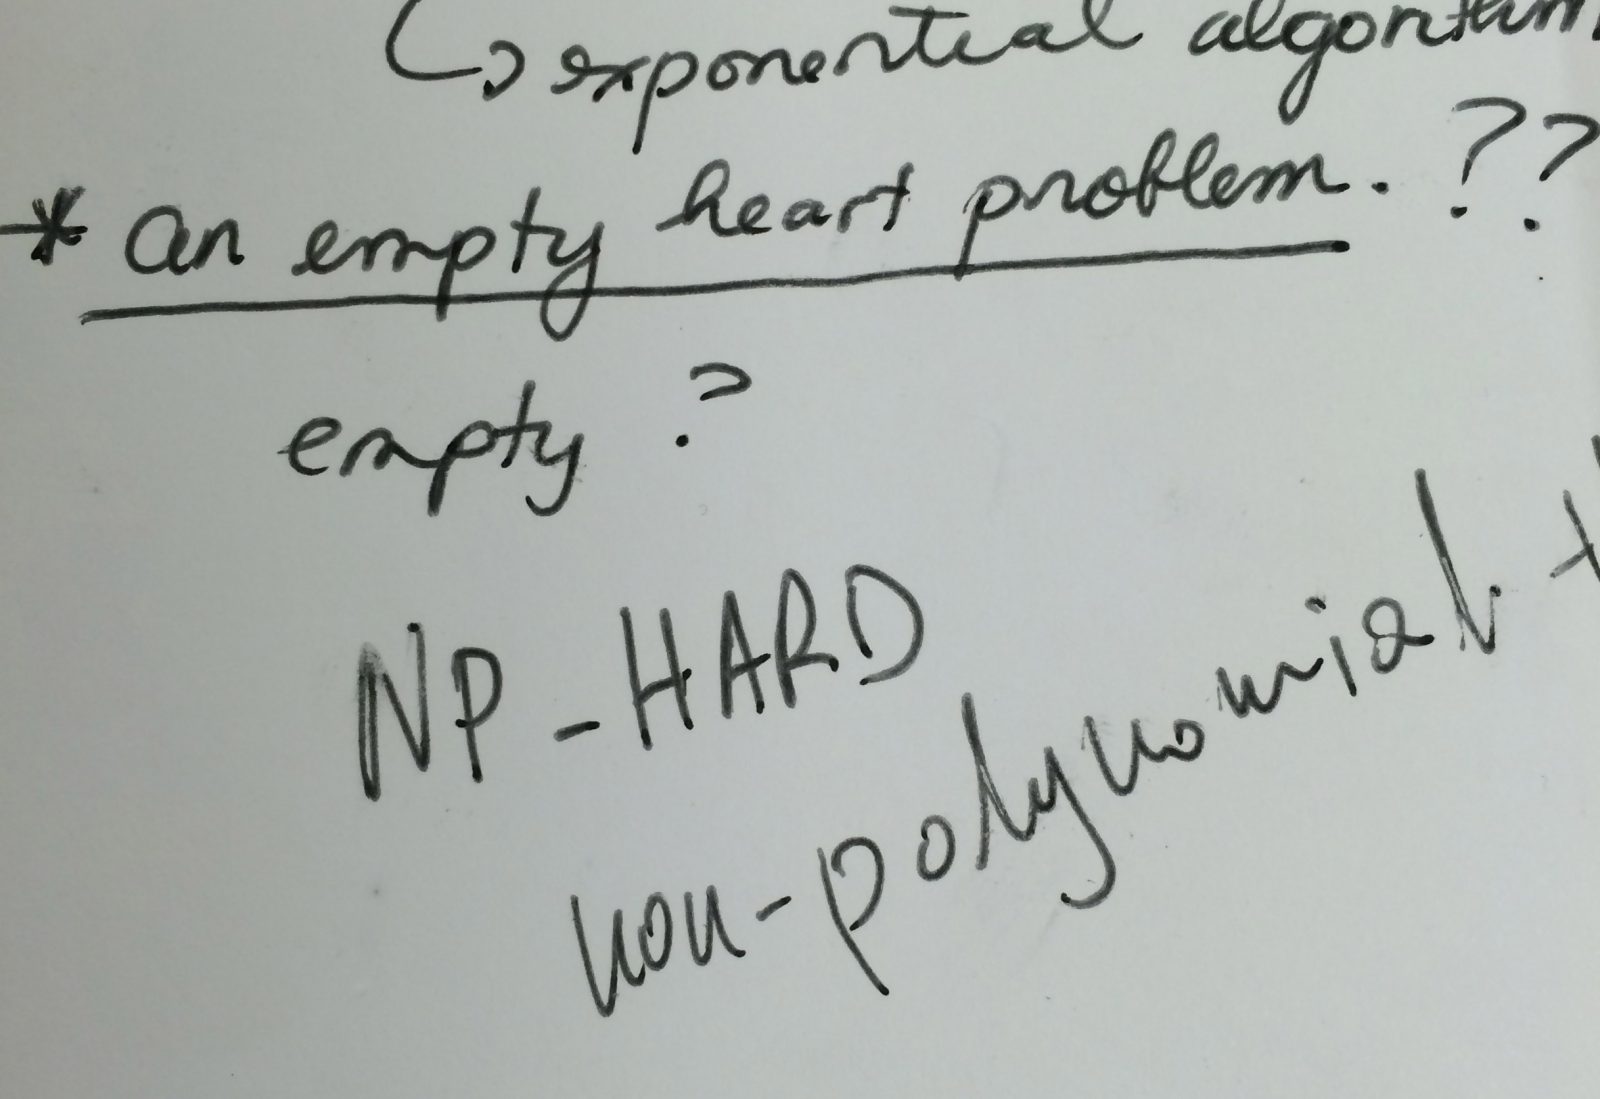 ↳ exponential algorithm
* an empty heart problem. ??
empty ?
NP-HARD
non-polynomial t